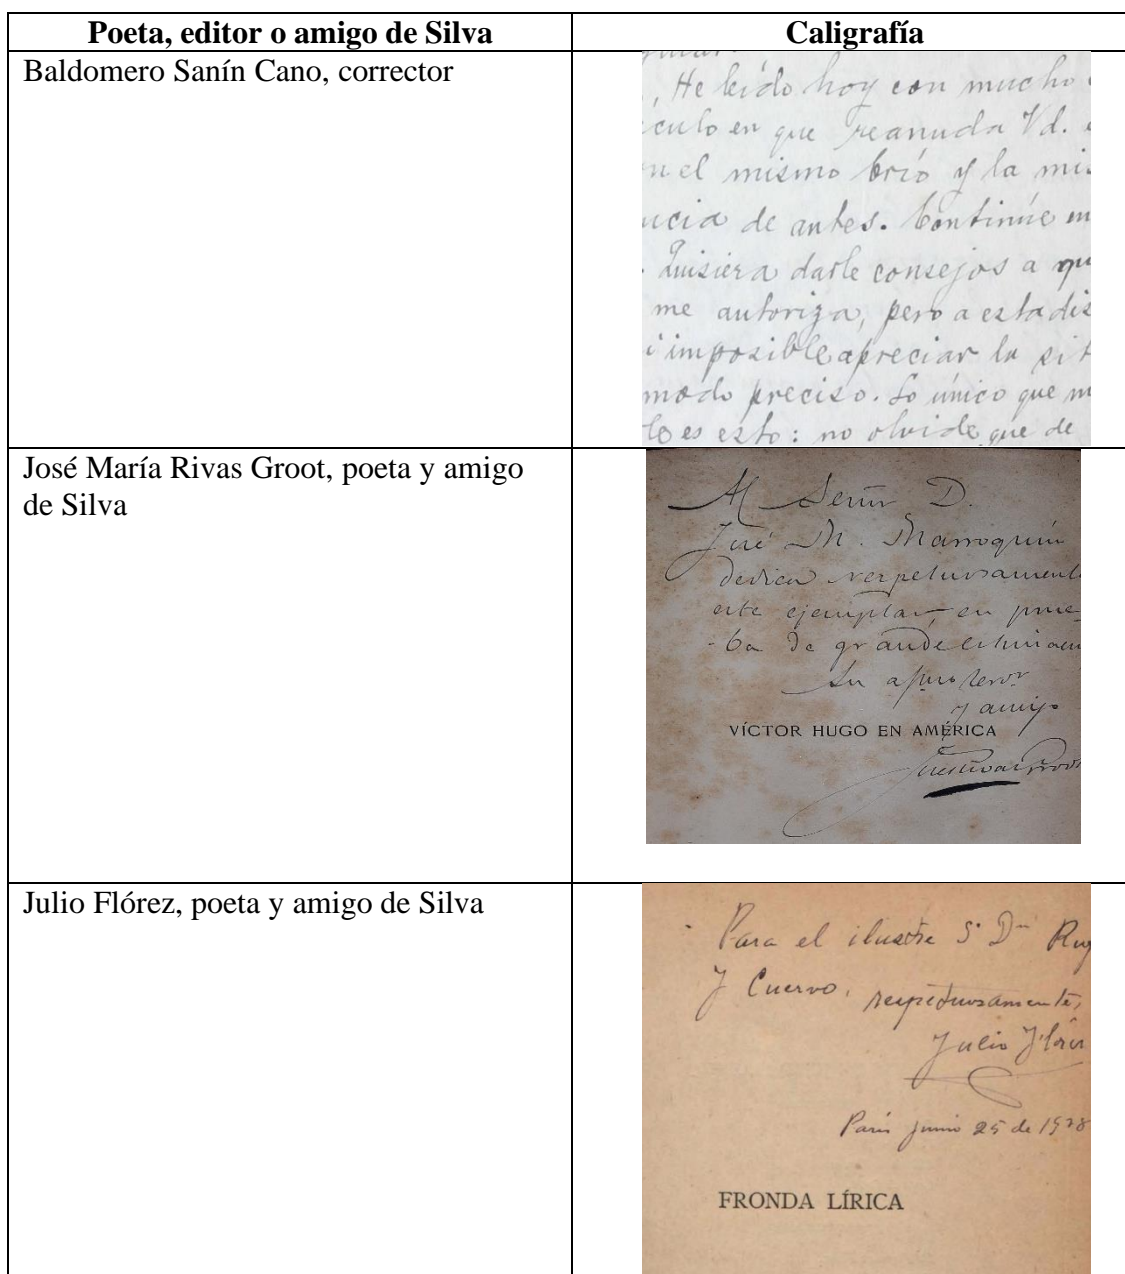 Poeta, editor o amigo de Silva
Caligrafía
Baldomero Sanín Cano, corrector
, He leído hoy con mucho
ículo en que reanuda Vd.
n el mismo brío y la mis
ncia de antes. Continúe en
Quisiera darle consejos a qu
me autoriza, pero a esta dis
i imposible apreciar la sit
modo preciso. Lo único que m
le es esto: no olvide que de
José María Rivas Groot, poeta y amigo
de Silva
Al Señor D.
José M. Marroquín
dedica respetuosamente
este ejemplar, en prue-
-ba de grande estimacn
Su
y amigo
VÍCTOR HUGO EN AMÉRICA
Julio Flórez, poeta y amigo de Silva
Para el ilustre Sr Dn Ruf
J Cuervo, respetuosamente,
Julio Flórez
París junio 25 de
FRONDA LÍRICA